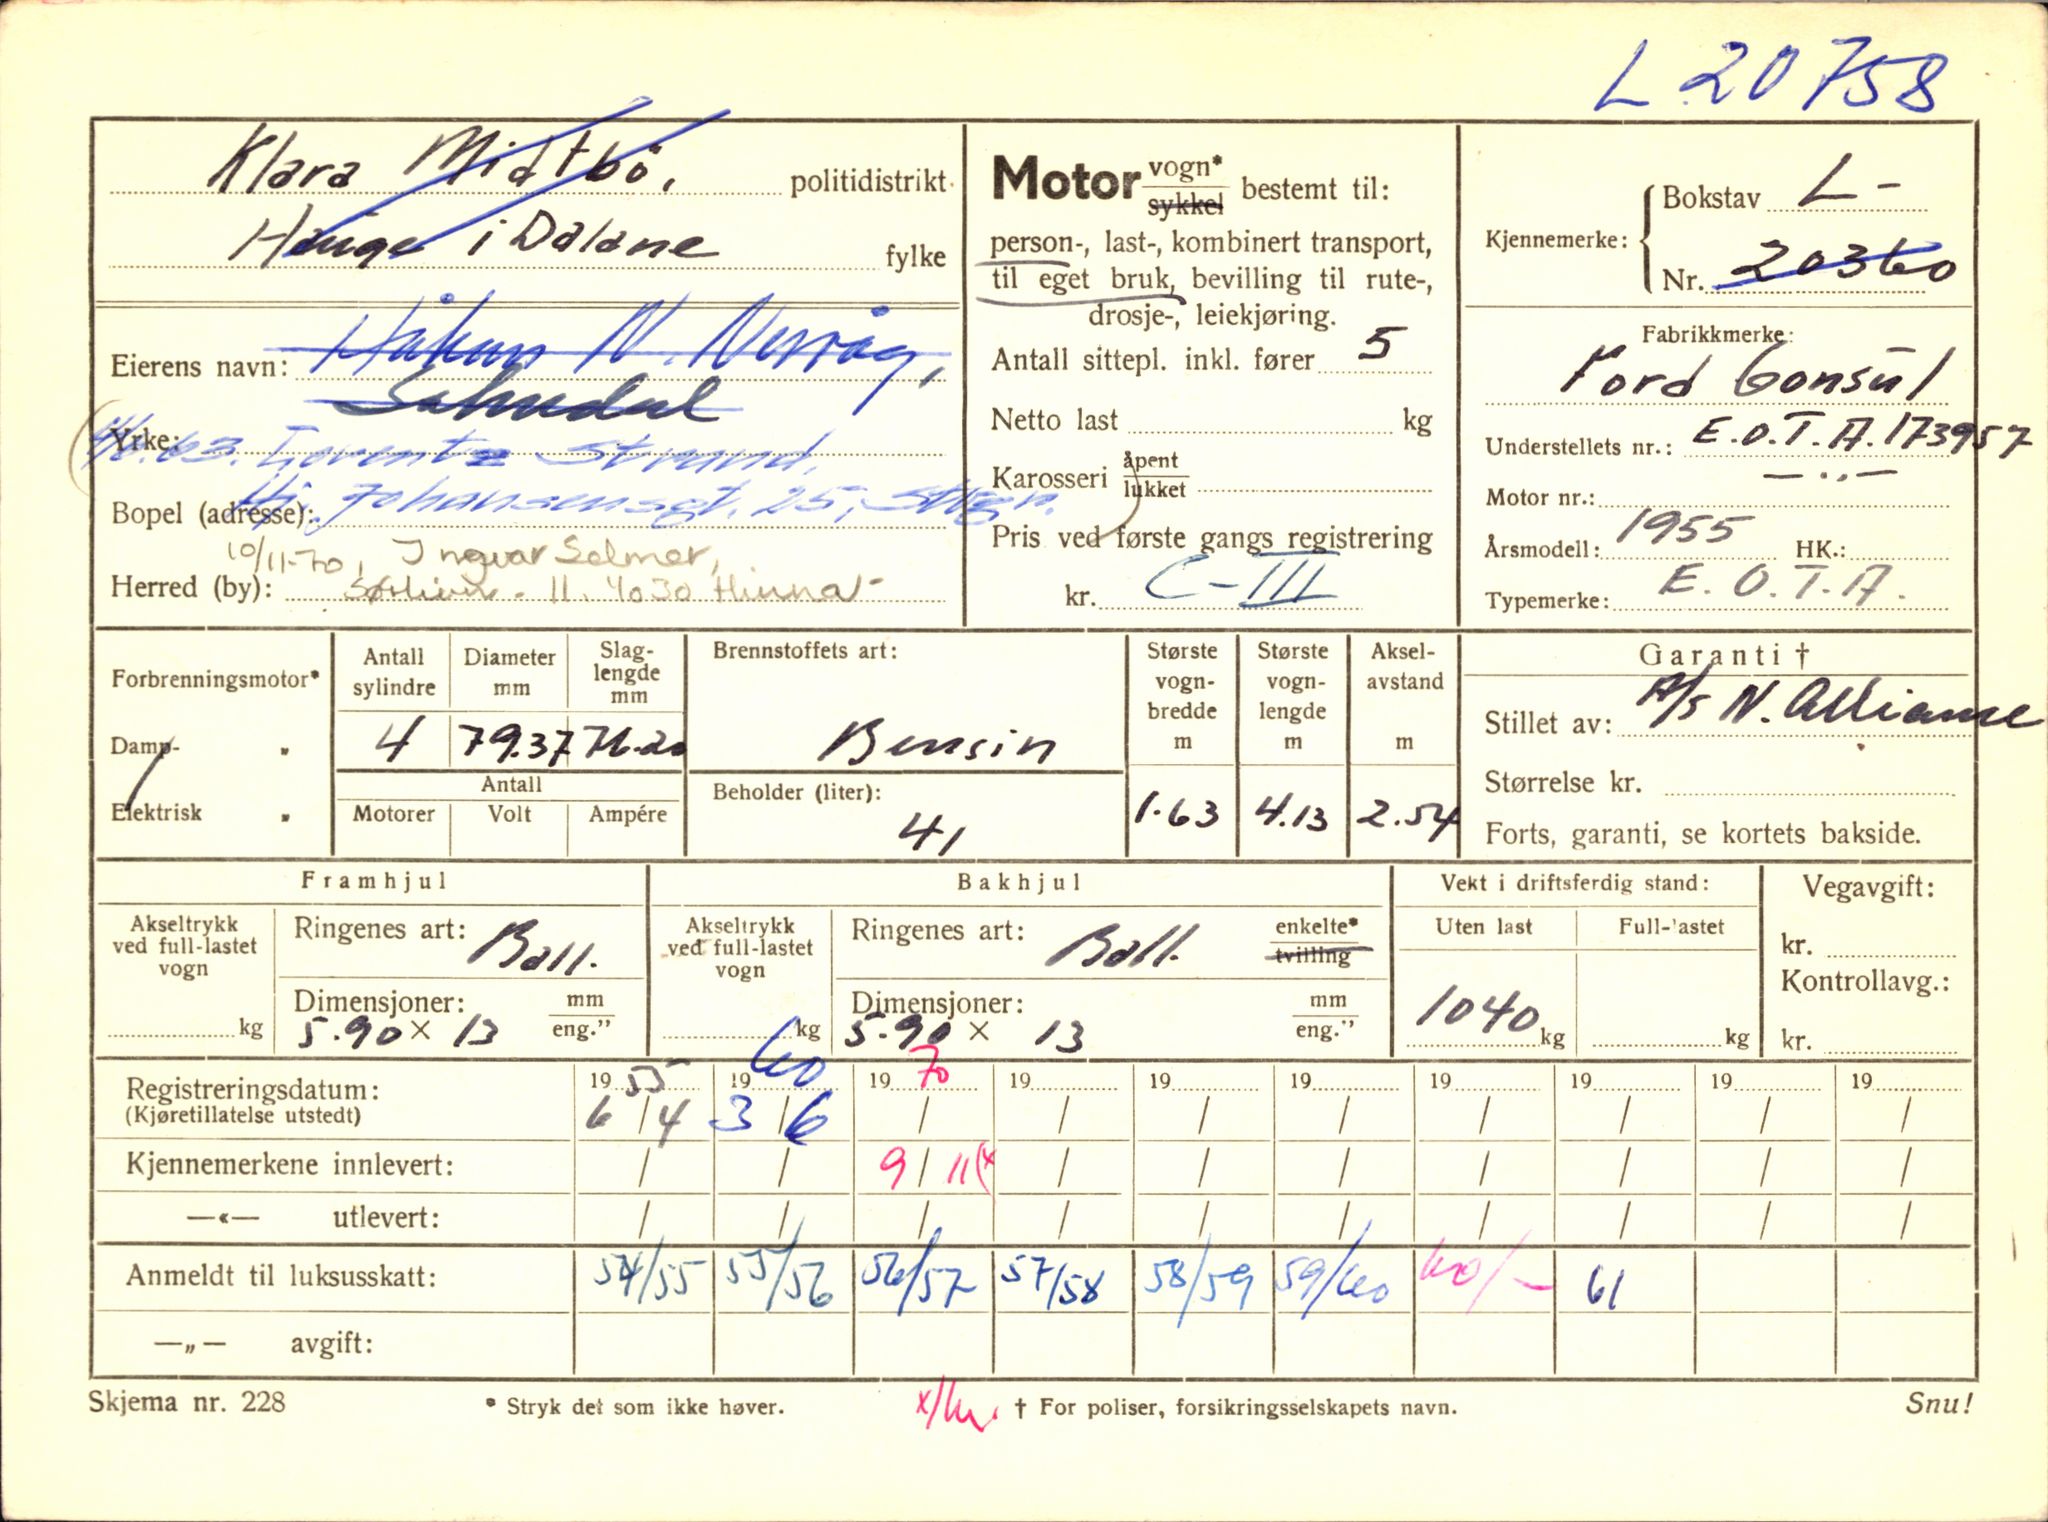 L 20758
Klara Midtbö, politidistrikt
Hauge i Dalane fylke
Eierens navn: Håkon N. Nesvåg,
Sokndal
Yrke: 4/6.63. Lorentz Strand,
Bopel (adresse): Hj. Johansensgt. 25, Stvgr.
10/11-70, Ingvar Selmer,
Herred (by): 11. 4030 Hinna
Motor vogn* sykkel bestemt til:
person-, last-, kombinert transport,
til eget bruk, bevilling til rute-,
drosje-, leiekjøring.
Antall sittepl. inkl. fører 5
Netto last kg
Karosseri åpent lukket
Pris ved første gangs registrering
kr. C-III
Kjennemerke: Bokstav L-
Nr. 20360
Fabrikkmerke:
Ford Consul
Understellets nr.: E.O.T.A. 173957
Motor nr.: —"—
Årsmodell: 1955 HK.:
Typemerke: E.O.T.A.
Forbrenningsmotor*
Damp- "
Elektrisk "
Antall sylindre Diameter mm Slag-lengde mm
4 79.37 76.20
Antall
Motorer Volt Ampére
Brennstoffets art:
Bensin
Beholder (liter):
41
Største vogn-bredde m Største vogn-lengde m Aksel-avstand m
1.63 4.13 2.54
Garanti †
Stillet av: A/S N. Alliance
Størrelse kr.
Forts, garanti, se kortets bakside.
Framhjul
Akseltrykk ved full-lastet vogn
kg
Ringenes art: Ball.
Dimensjoner: mm eng."
5.90 × 13
Bakhjul
Akseltrykk ved full-lastet vogn
kg
Ringenes art: Ball. enkelte* tvilling
Dimensjoner: mm eng."
5.90 × 13
Vekt i driftsferdig stand:
Uten last Full-lastet
1040 kg kg
Vegavgift:
kr.
Kontrollavg.:
kr.
Registreringsdatum: 19 55 19 60 19 70 19 19 19 19 19 19 19
(Kjøretillatelse utstedt) 6/4 3/6 / / / / / / / /
Kjennemerkene innlevert: / / 9/11 (x / / / / / / /
—«— utlevert: / / / / / / / / / /
Anmeldt til luksusskatt: 54/55 55/56 56/57 57/58 58/59 59/60 60/– 61
—„— avgift:
Skjema nr. 228 * Stryk det som ikke høver. † For poliser, forsikringsselskapets navn. Snu!